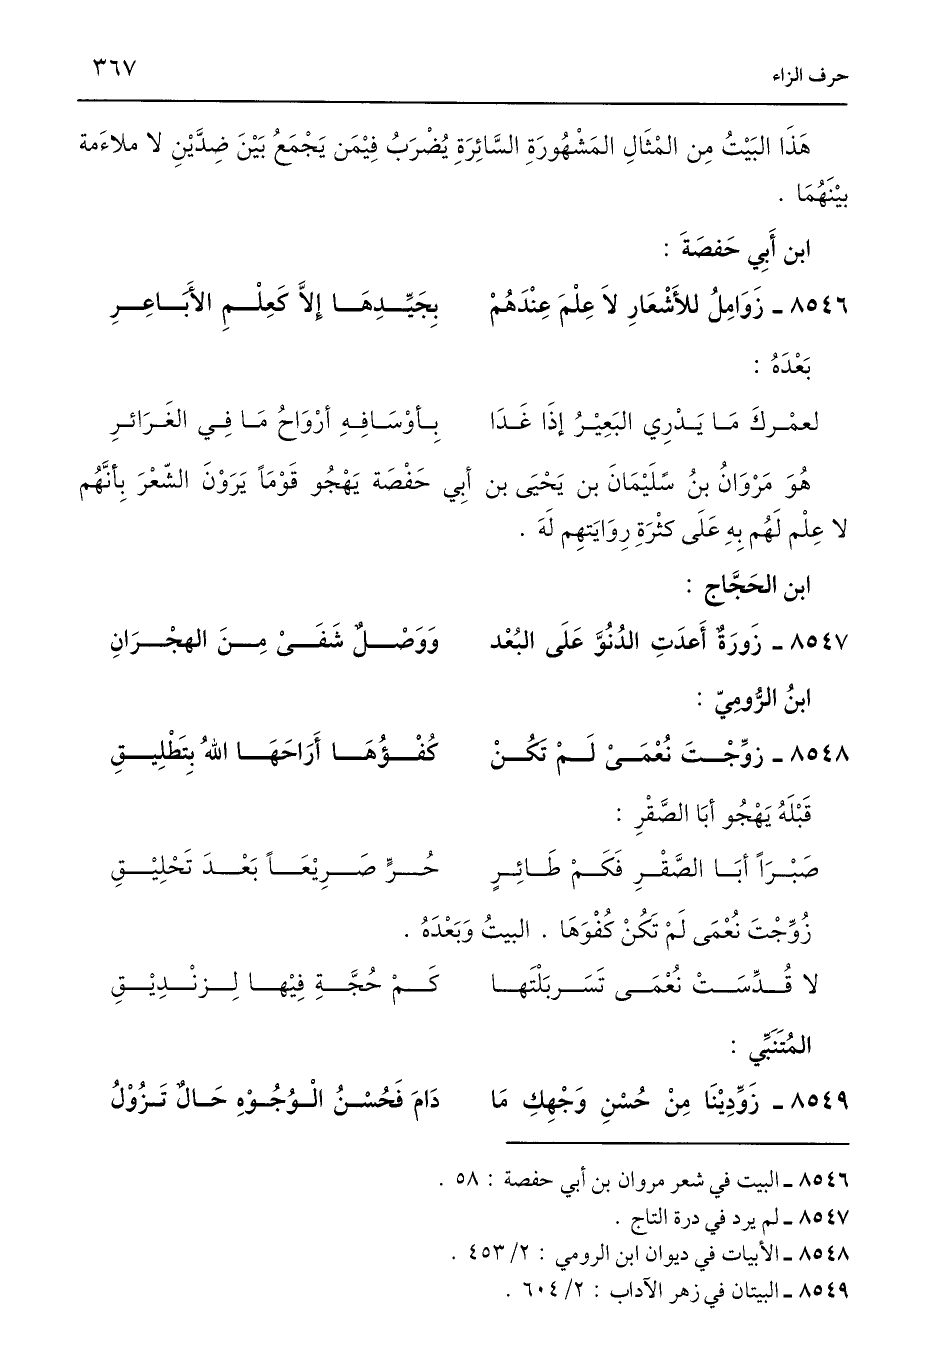 حرف الزاء ٣٦٧
هَذَا البَيْتُ مِن المْثَالِ المَشْهُورَةِ السَّائِرَةِ يُضْرَبُ فِيْمَن يَجْمَعُ بَيْنَ ضِدَّيْنِ لا ملاءَمة
بيْنَهُمَا .
ابن أَبِي حَفصَةَ :
٨٥٤٦ ـ زَوَامِلُ للأَشْعَارِ لاَ عِلْمَ عِنْدَهُمْ بِجَيِّدِهَا إِلاَّ كَعِلْمِ الأَبَاعِرِ
بَعْدَهُ :
لعمْركَ مَا يَدْرِي البَعِيْرُ إِذَا غَدَا بِأوْسَافِهِ أرْوَاحُ مَا فِي الغَرَائرِ
هُوَ مَرْوَانُ بنُ سُلَيْمَانَ بن يَحْيَى بن أَبِي حَفْصَة يَهْجُو قَوْمَاً يَرَوْنَ الشّعْرَ بِأنَّهُم
لا عِلْم لَهُم بِهِ عَلَى كثْرَةِ رِوَايَتهِم لَهَ .
ابن الحَجَّاج :
٨٥٤٧ ـ زَورَةٌ أَعدَتِ الدُنُوَّ عَلَى البُعْد وَوَصْلٌ شَفَىْ مِنَ الهجْرَانِ
ابنُ الرُّومِيّ :
٨٥٤٨ ـ زوِّجْتَ نُعْمَىْ لَمْ تَكُنْ كُفْؤُهَا أَرَاحَهَا اللهُ بِتَطْلِيقِ
قَبْلَهُ يَهْجُو أبَا الصَّقْرِ :
صَبْرَاً أبَا الصَّقْرِ فَكَمْ طَائِرٍ حُرٍّ صَرِيْعَاً بَعْدَ تَحْلِيْقِ
زُوِّجْتَ نُعْمَى لَمْ تَكُنْ كُفْوَهَا . البيتُ وَبَعْدَهُ .
لا قُدِّسَتْ نُعْمَى تَسَربَلْتَها كَمْ حُجَّةٍ فِيْها لِزنْدِيْقِ
المُتَنَبِّي :
٨٥٤٩ ـ زَوِّدِيْنَا مِنْ حُسْنِ وَجْهِكِ مَا دَامَ فَحُسْنُ الْوُجُوْهِ حَالٌ تَزُوْلُ
٨٥٤٦ ـ البيت في شعر مروان بن أبي حفصة : ٥٨ .
٨٥٤٧ ـ لم يرد في درة التاج .
٨٥٤٨ ـ الأبيات في ديوان ابن الرومي : ٢/ ٤٥٣ .
٨٥٤٩ ـ البيتان في زهر الآداب : ٢/ ٦٠٤ .